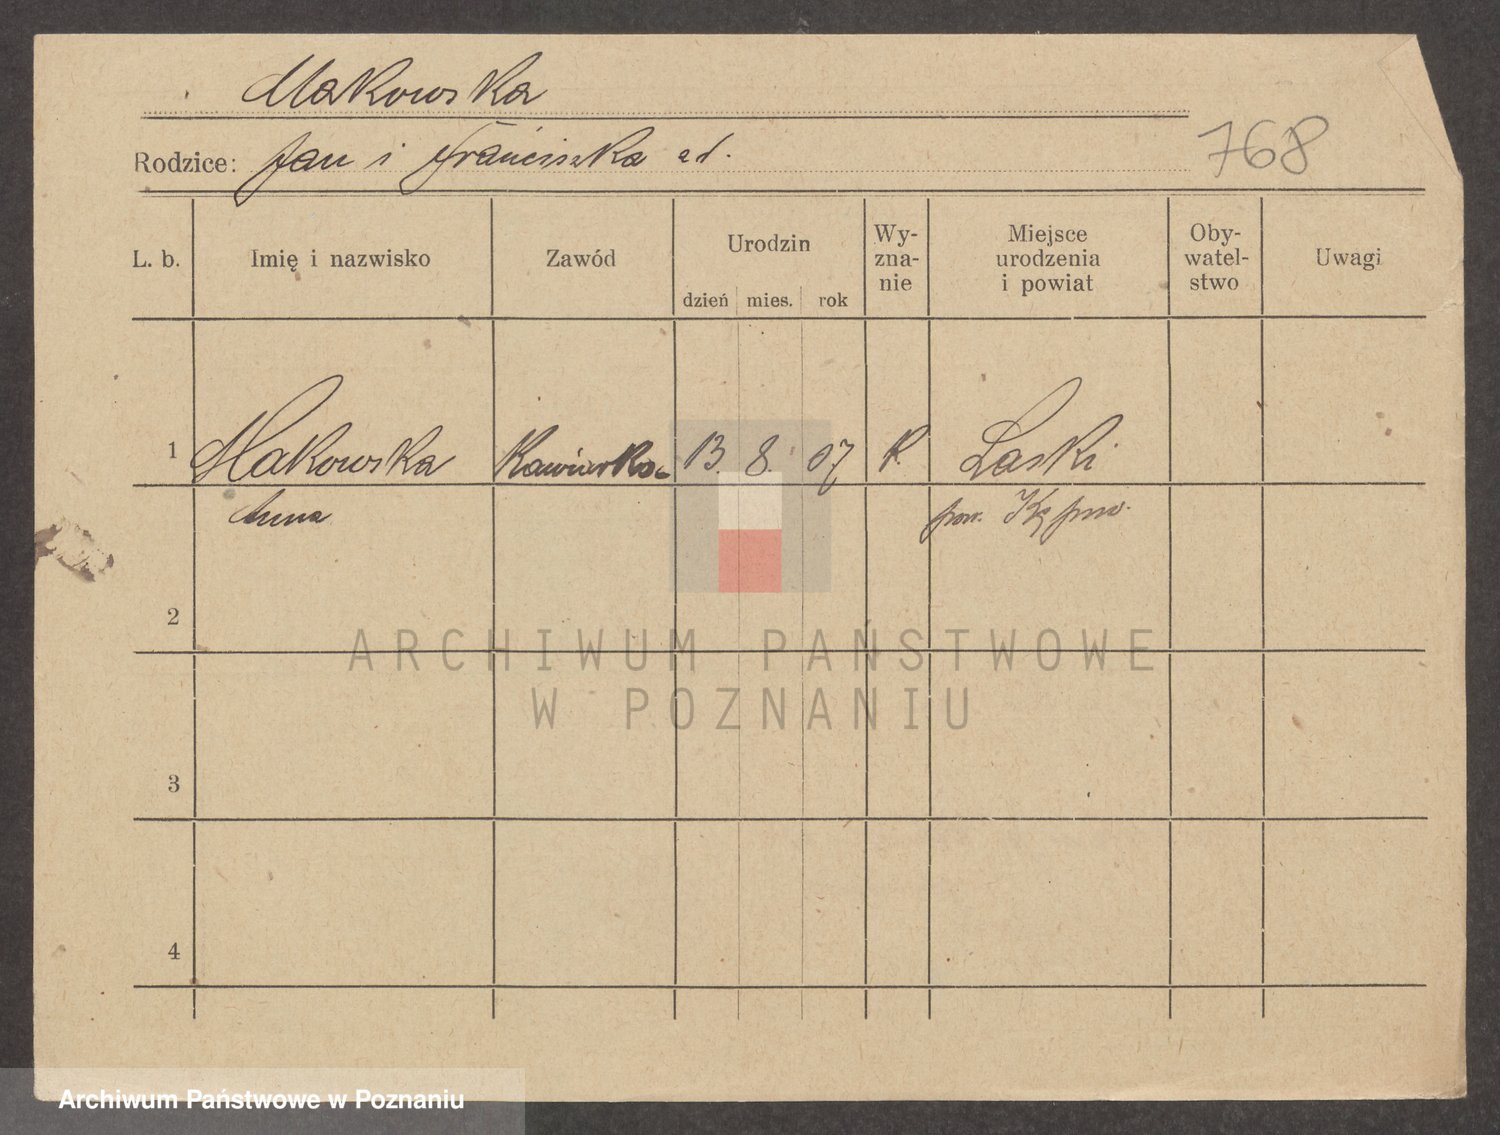 Makowska
Rodzice: Jan i Franciszka
768
L. b. Imię i nazwisko Zawód Urodzin dzień mies. rok Wy-zna-nie Miejsce urodzenia i powiat Oby-watel-stwo Uwagi
1 Makowska 13. 8. 07 R. Laski
Anna pow. Kępno.
2
ARCHIWUM PAŃSTWOWE
W POZNANIU
3
4
Archiwum Państwowe w Poznaniu